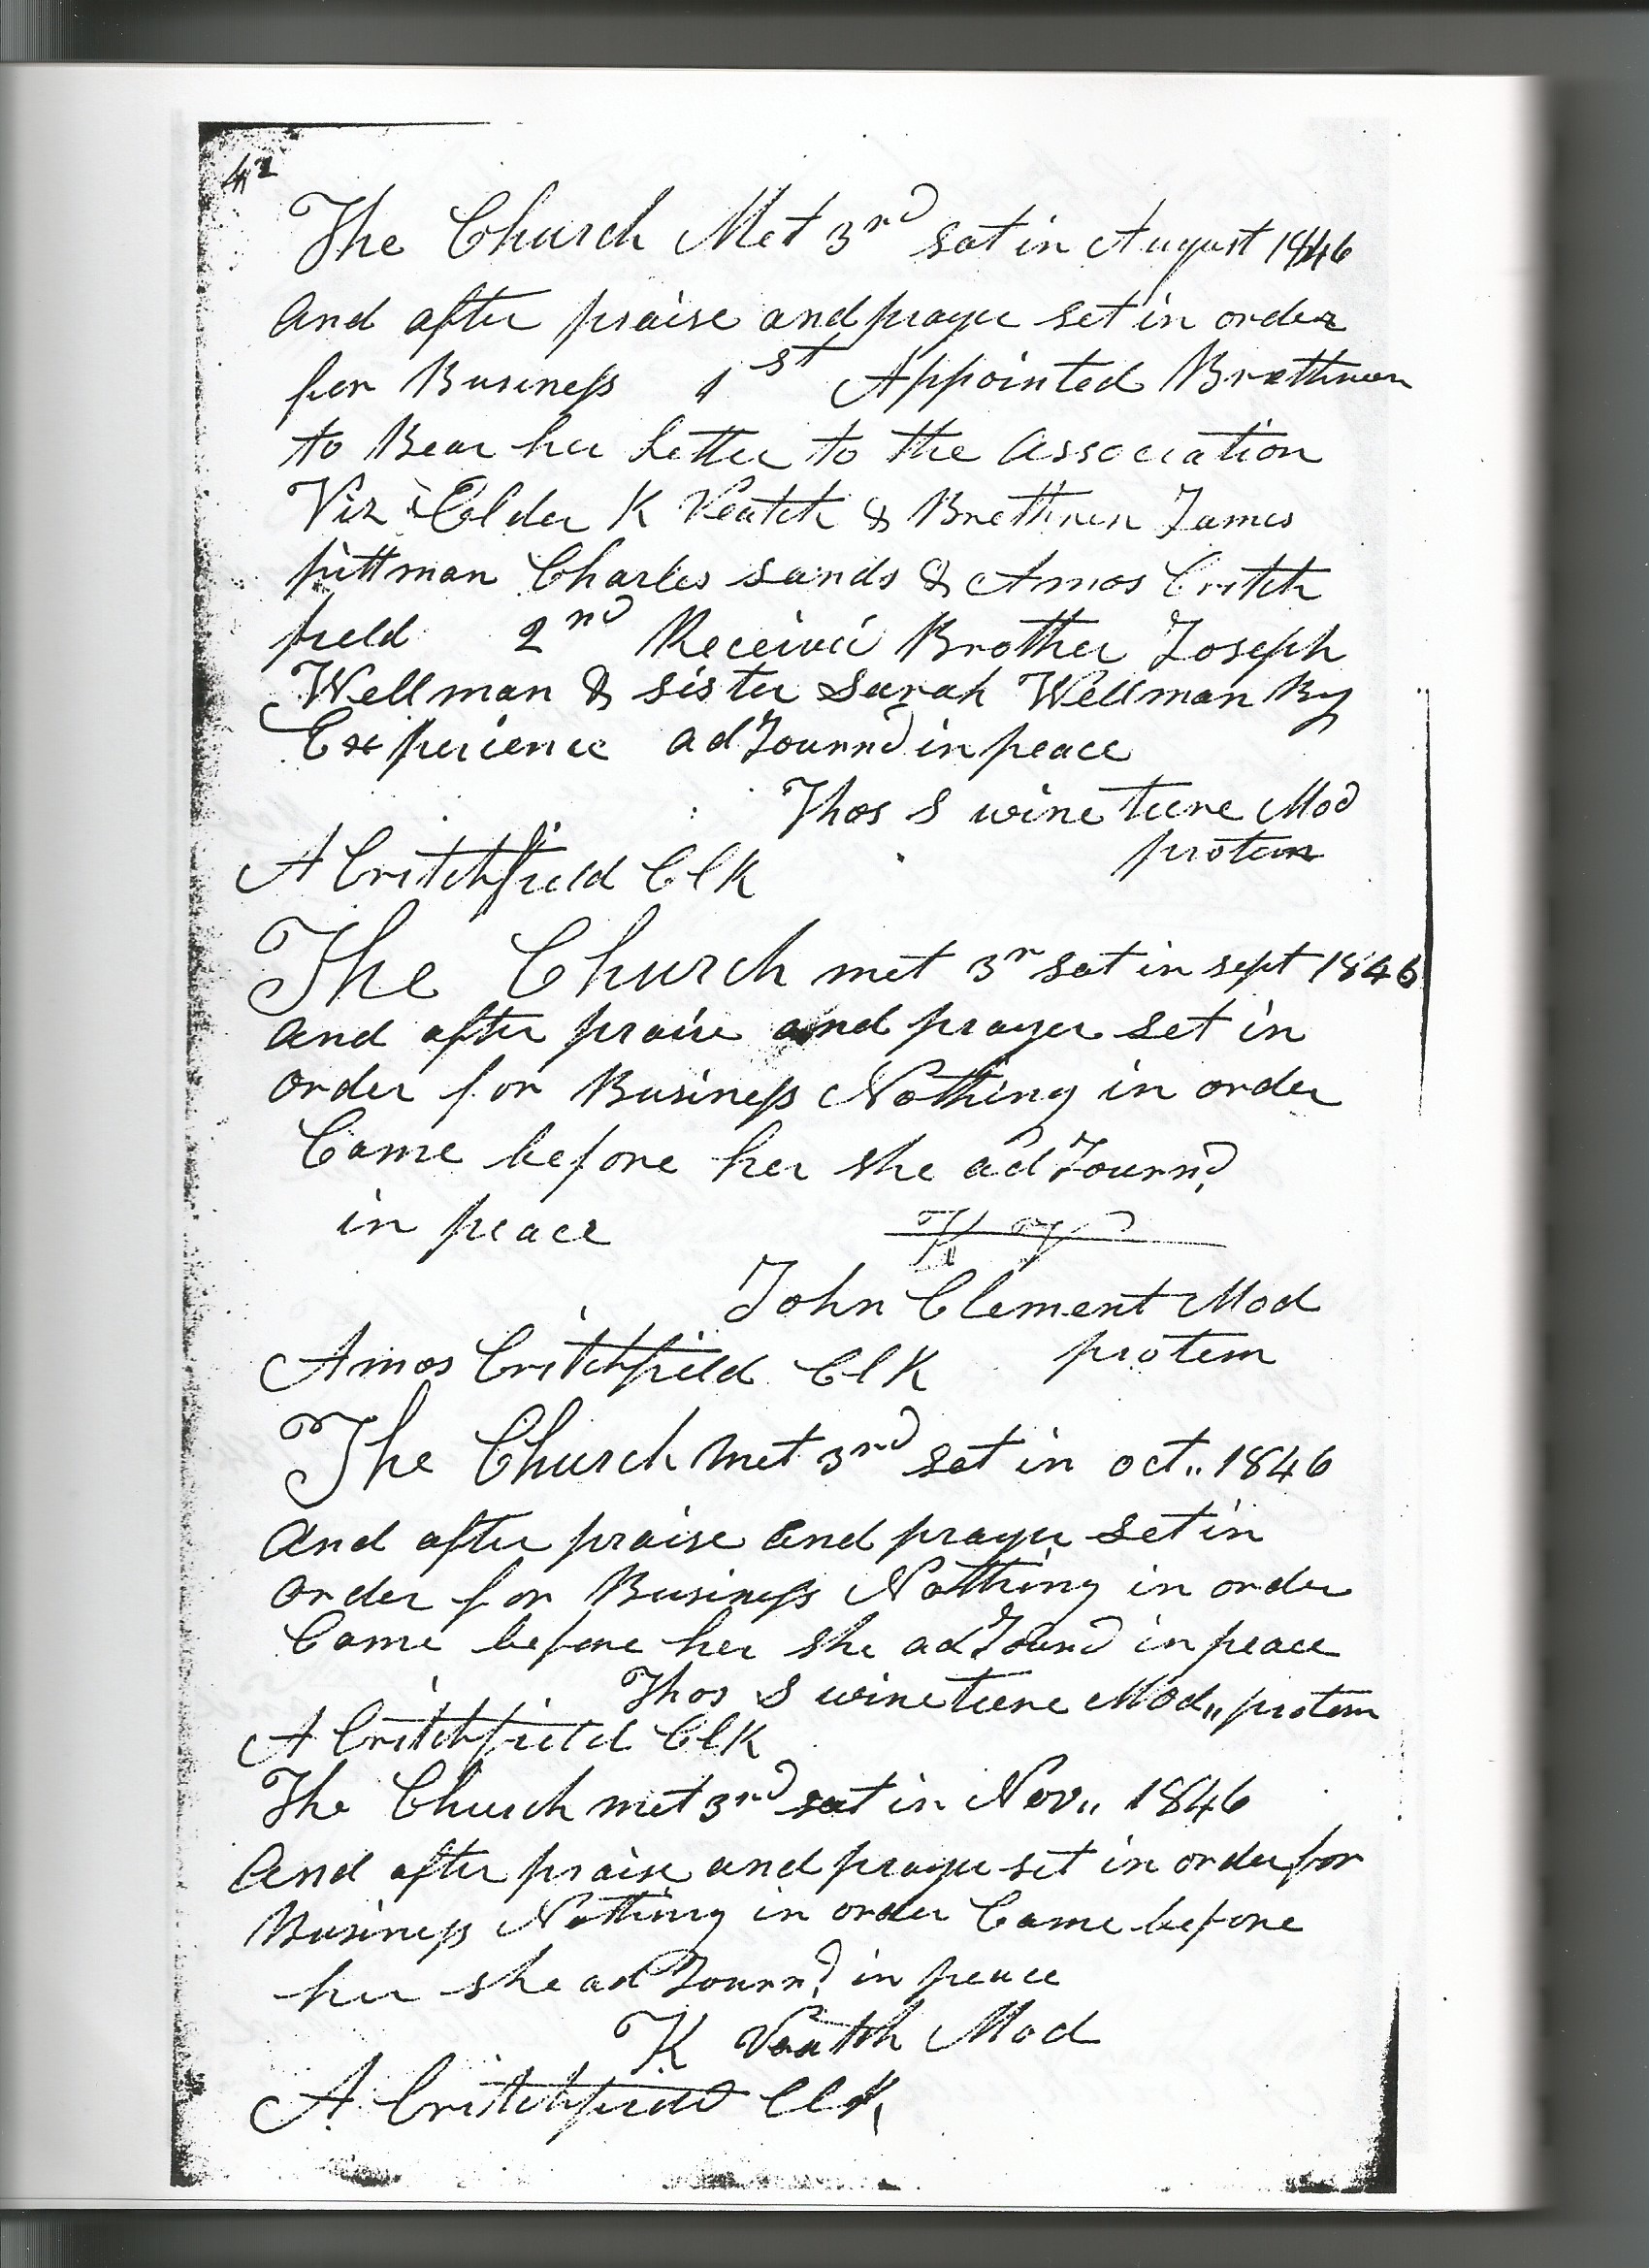 42
The Church Met 3rd sat in August 1846
and after praise and prayer set in order
for Business 1st Appointed Brethren
to Bear her Letter to the association
Viz Elder K Veatch & Brethren James
pittman Charles sands & Amos Critch
field 2nd Received Brother Joseph
Wellman & sister Sarah Wellman By
Experience adJournd in peace
Thos S wineteere Mod
protem
A Critchfield Clk
The Church met 3r sat in sept 1846
and after praise and prayer set in
order for Business Nothing in order
Came before her she adJournd
in peace K V
John Clement Mod
protem
Amos Critchfield Clk
The Church met 3rd sat in oct,, 1846
and after praise and prayer set in
order for Business Nothing in order
Came before her she adJournd in peace
Thos S wineteere Mod,, protem
A Critchfield Clk
The Church met 3rd sat in Nov,, 1846
and after praise and prayer set in order for
Business Nothing in order Came before
her she adJournd in peace
K Veatch Mod
A Critchfield Clk